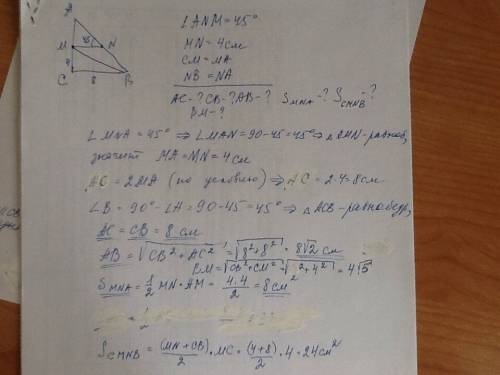 A
M 45° N
4
C 8 B
∠ANM = 45°
MN = 4 см
CM = MA
NB = NA
AC - ? CB - ? AB - ? S_MNA - ? S_CMNB - ?
BM - ?
∠MNA = 45° ⇒ ∠MAN = 90 - 45 = 45° ⇒ △AMN - равноб,
значит MA = MN = 4 см
AC = 2MA (по условию) ⇒ AC = 2·4 = 8см
∠B = 90° - ∠A = 90 - 45 = 45° ⇒ △ACB - равнобедр,
AC = CB = 8 см
AB = √CB² + AC² = √8² + 8² = 8√2 см
= √CB² + CM² = √8² + 4² = 4√5
S_MNA = 1/2 MN · AM = 4·4/2 = 8 см²
S_CMNB = (MN + CB)/2 · MC = (4+8)/2 · 4 = 24 см²